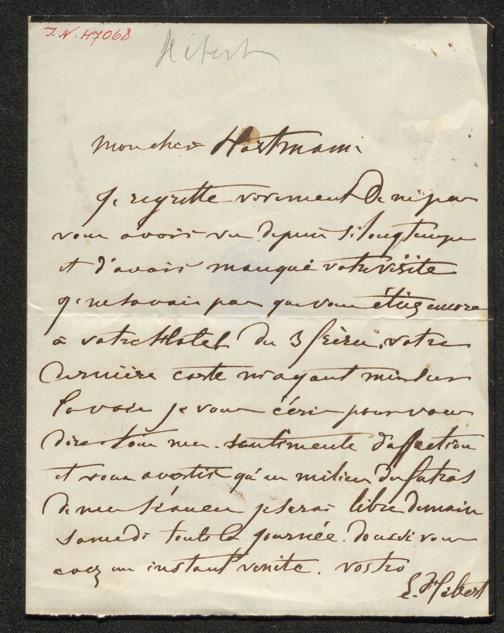 I.N. 47068
Hébert
Mon cher Hartmann
Je regrette vivement de ne pas
vous avoir vu depuis si longtemps
et d'avoir manqué votre visite
je ne savais pas que vous étiez encore
à votre Hotel des 3 frères, votre
dernière carte m'ayant mis sur
la voie je vous écris pour vous
dire tous mes sentiments d'affection
et vous avertir qu'au milieu du fatras
de mes séances je serai libre demain
samedi toute la journée. donc si vous
avez un instant venite. vostro
E. Hébert